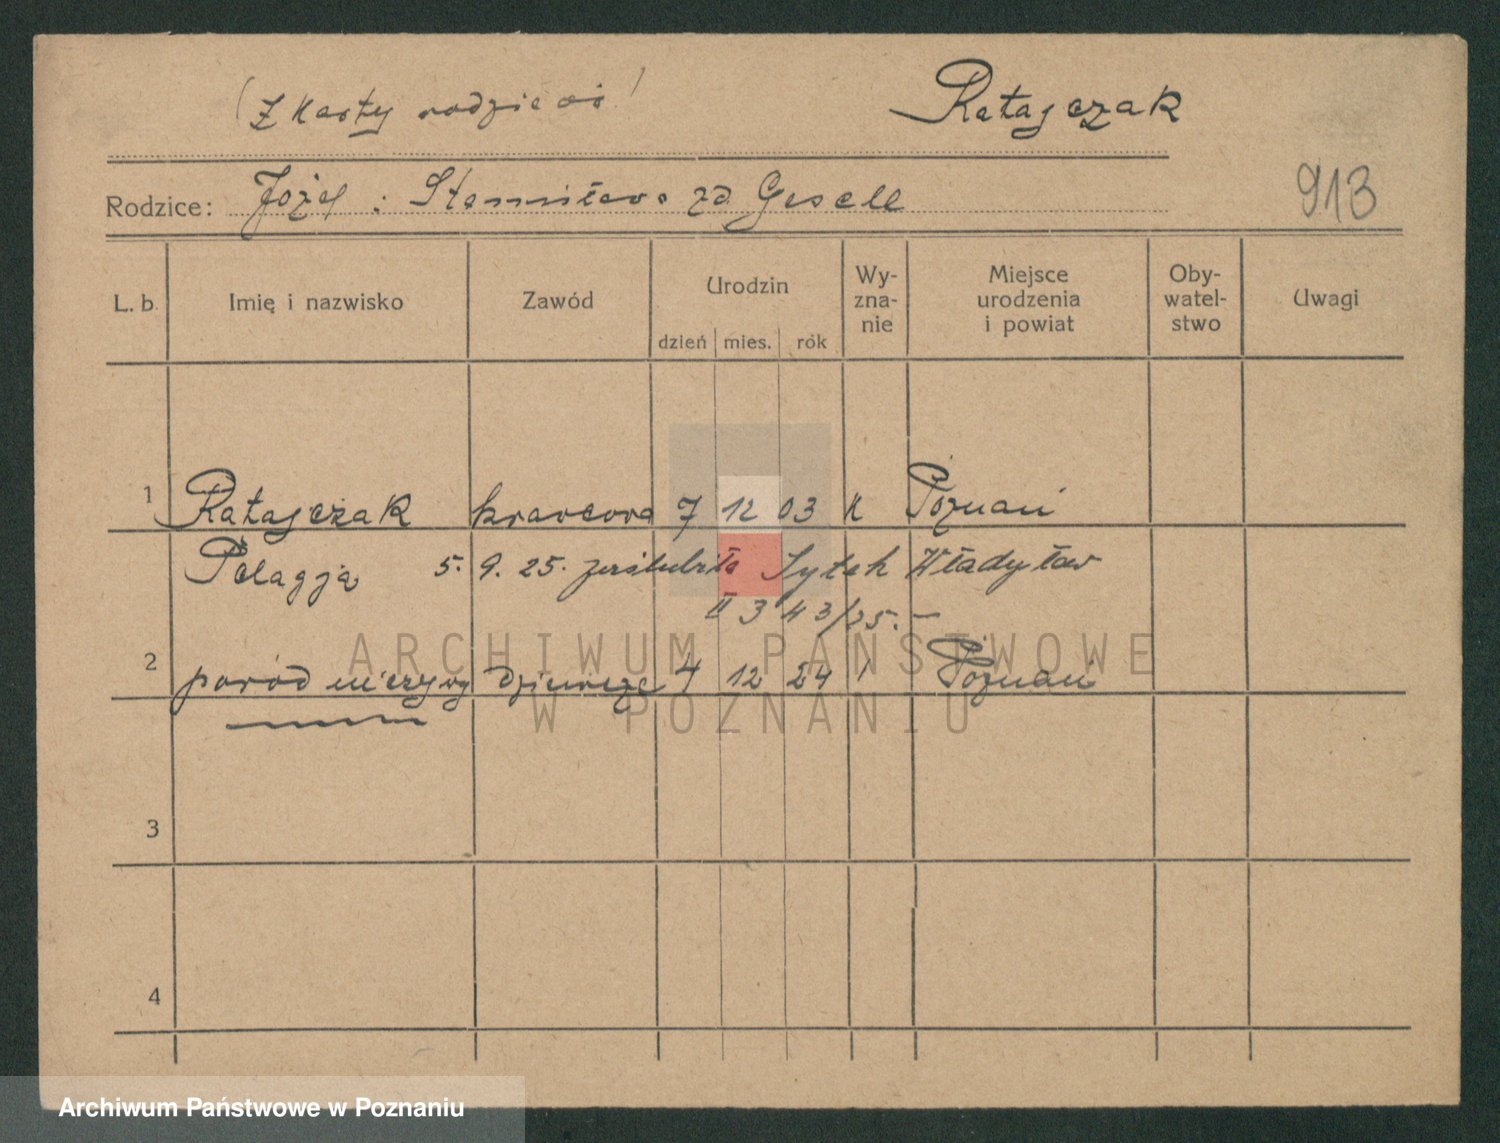 (Z karty rodziców)
Ratajczak
913
Rodzice: Józef i Stanisława zd. Gesell
L. b. Imię i nazwisko Zawód Urodzin Wy-zna-nie Miejsce urodzenia i powiat Oby-watel-stwo Uwagi
dzień mies. rok
1 Ratajczak krawcowa 7 12 03 k Poznań
Pelagja 5. 9. 25. poślubiła Sytek Władysław
II 343/25.—
2 poród nieżywy dziewczę 4 12 24 Poznań
3
4
ARCHIWUM PAŃSTWOWE
W POZNANIU
Archiwum Państwowe w Poznaniu